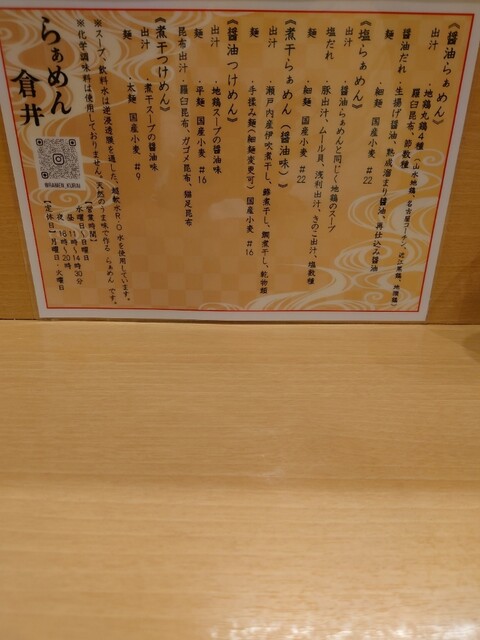 《醤油らぁめん》
出汁　・地鶏丸鶏4種（山水地鶏、名古屋コーチン、近江黒鶏、地頭鶏）
羅臼昆布、節数種
醤油だれ　・生揚げ醤油、熟成溜まり醤油、再仕込み醤油
麺　・細麺　国産小麦　#22
《塩らぁめん》
出汁　・醤油らぁめんと同じく地鶏のスープ
塩だれ　・豚出汁、ムール貝、浅利出汁、きのこ出汁、塩数種
麺　・細麺　国産小麦　#22
《煮干らぁめん（醤油味）》
出汁　・瀬戸内産伊吹煮干し、鯵煮干し、鯛煮干し、乾物類
麺　・手揉み麺（細麺変更可）国産小麦　#16
《醤油つけめん》
出汁　・地鶏スープの醤油味
麺　・平麺　国産小麦　#16
昆布出汁　・羅臼昆布、ガゴメ昆布、猫足昆布
《煮干つけめん》
出汁　・煮干スープの醤油味
麺　・太麺　国産小麦　#9
※スープ、飲料水は逆浸透膜を通した、超軟水R.O水を使用しています。
※化学調味料は使用しておりません。天然のうま味で作る　らぁめん　です。
【営業時間】
水曜日〜日曜日
昼　11時〜14時30分
夜　18時〜20時
【定休日】月曜日・火曜日
らぁめん　倉井
@RAMEN_KURAI